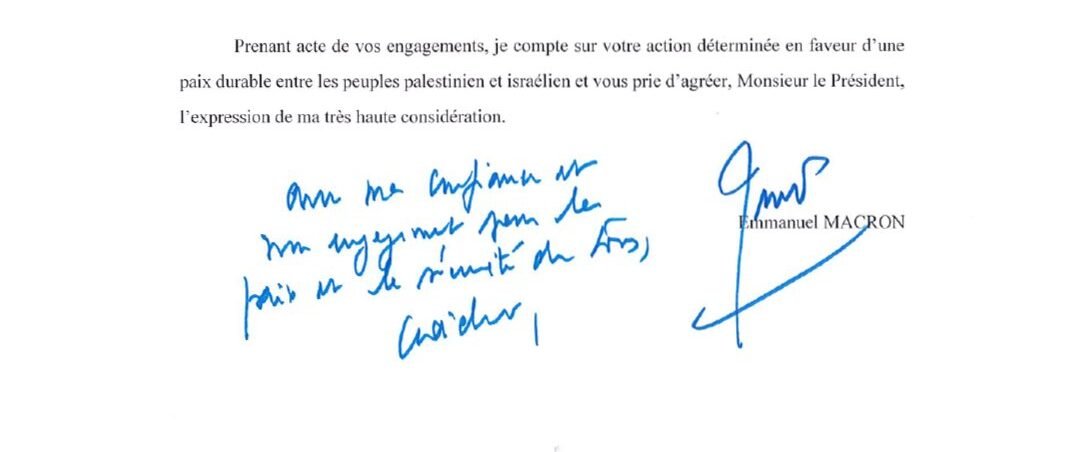 Prenant acte de vos engagements, je compte sur votre action déterminée en faveur d’une
paix durable entre les peuples palestinien et israélien et vous prie d’agréer, Monsieur le Président,
l’expression de ma très haute considération.
ma confiance et
mon engagement pour la
paix et la sécurité de tous,
Emmanuel MACRON